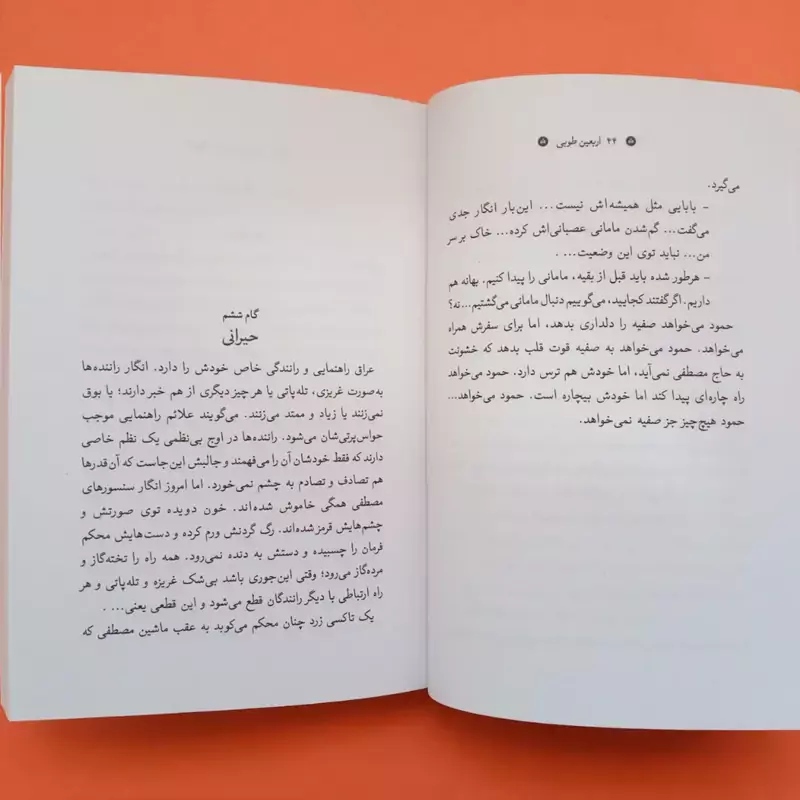 ۴۴ اربعین طوبی
می‌گیرد.
– بابایی مثل همیشه‌اش نیست... این‌بار انگار جدی
می‌گفت... گم‌شدن مامانی عصبانی‌اش کرده... خاک بر سر
من... نباید توی این وضعیت... .
– هرطور شده باید قبل از بقیه، مامانی را پیدا کنیم. بهانه هم
داریم. اگر گفتند کجایید، می‌گوییم دنبال مامانی می‌گشتیم... نه؟
حمود می‌خواهد صفیه را دلداری بدهد، اما برای سفرش همراه
می‌خواهد. حمود می‌خواهد به صفیه قوت قلب بدهد که خشونت
به حاج مصطفی نمی‌آید، اما خودش هم ترس دارد. حمود می‌خواهد
راه چاره‌ای پیدا کند اما خودش بیچاره است. حمود می‌خواهد...
حمود هیچ‌چیز جز صفیه نمی‌خواهد.
گام ششم
حیرانی
عراق راهنمایی و رانندگی خاص خودش را دارد. انگار راننده‌ها
به‌صورت غریزی، تله‌پاتی یا هر چیز دیگری از هم خبر دارند؛ یا بوق
نمی‌زنند یا زیاد و ممتد می‌زنند. می‌گویند علائم راهنمایی موجب
حواس‌پرتی‌شان می‌شود. راننده‌ها در اوج بی‌نظمی یک نظم خاصی
دارند که فقط خودشان آن را می‌فهمند و جالبش این‌جاست که آن قدرها
هم تصادف و تصادم به چشم نمی‌خورد. اما امروز انگار سنسورهای
مصطفی همگی خاموش شده‌اند. خون دویده توی صورتش و
چشم‌هایش قرمز شده‌اند. رگ گردنش ورم کرده و دست‌هایش محکم
فرمان را چسبیده و دستش به دنده نمی‌رود. همه راه را تخته‌گاز و
مرده‌گاز می‌رود؛ وقتی این‌جوری باشد بی‌شک غریزه و تله‌پاتی و هر
راه ارتباطی با دیگر رانندگان قطع می‌شود و این قطعی یعنی... .
یک تاکسی زرد چنان محکم می‌کوبد به عقب ماشین مصطفی که